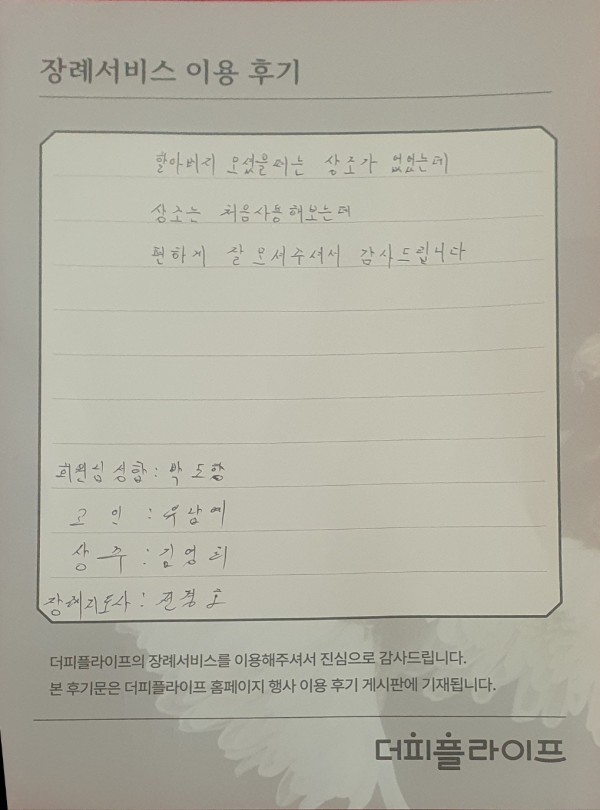 장례서비스 이용 후기
할아버지 모셨을때는 상조가 없었는데
상조는 처음사용해보는데
편하게 잘 모셔주셔서 감사드립니다
회원님 성함 : 박도항
고 인 : 우남예
상 주 : 김영희
장례지도사 : 전경호
더피플라이프의 장례서비스를 이용해주셔서 진심으로 감사드립니다.
본 후기문은 더피플라이프 홈페이지 행사 이용 후기 게시판에 기재됩니다.
더피플라이프